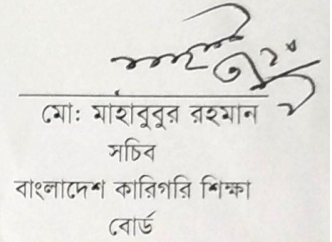 মো: মাহাবুবুর রহমান
সচিব
বাংলাদেশ কারিগরি শিক্ষা
বোর্ড